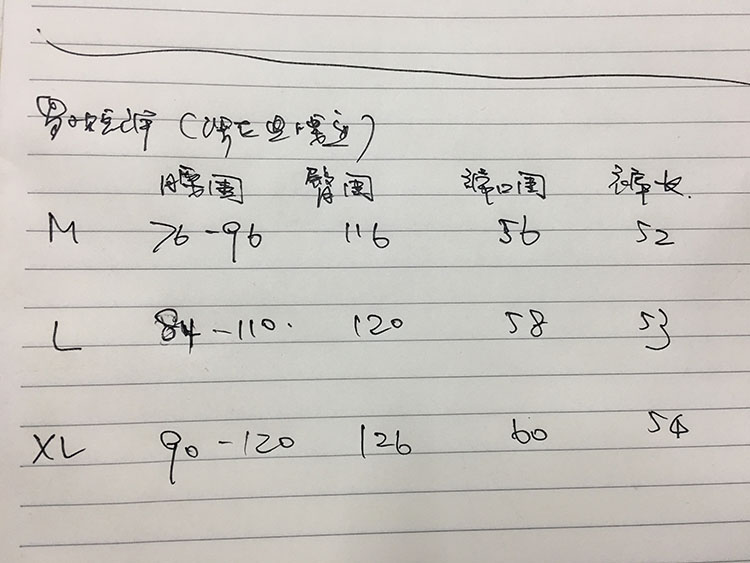 男 短裤
腰围 臀围 裤口围 裤长
M 76-96 116 56 52
L 84-110. 120 58 53
XL 90-120 126 60 54